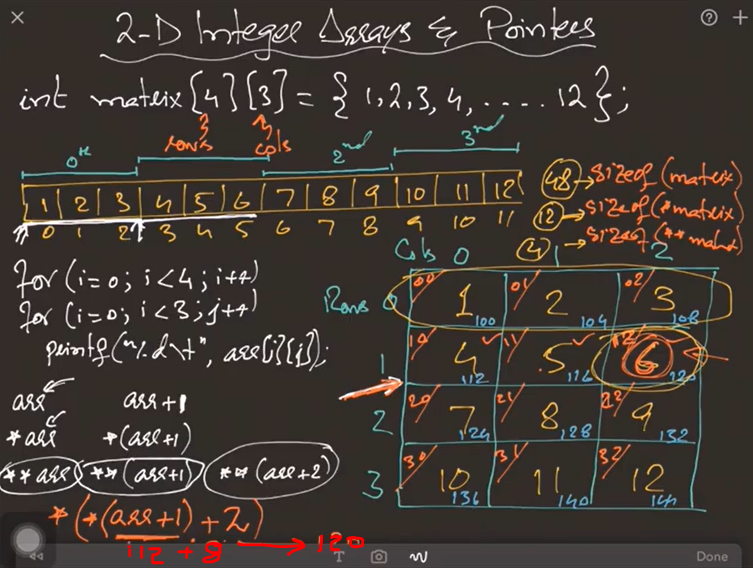 2-D Integer Arrays & Pointers
int matrix[4][3] = {1,2,3,4,.....12};
rows cols
0th 2nd 3rd
1 2 3 4 5 6 7 8 9 10 11 12
0 1 2 3 4 5 6 7 8 9 10 11
48 → sizeof(matrix)
12 → sizeof(*matrix)
4 → sizeof(**
for(i=0; i<4; i++)
for(i=0; i<3; j++)
printf("%d\t", arr[i][j]);
arr arr+1
*arr *(arr+1)
**arr **(arr+1) **(arr+2)
*(*(arr+1)+2)
112 + 8 → 120
Cols 0 1 2
Rows 0
00 1 100 01 2 104 02 3 108
1
10 4 112 11 5 116 12 6 120
2
20 7 124 21 8 128 22 9 132
3
30 10 136 31 11 140 32 12 144
T
Done